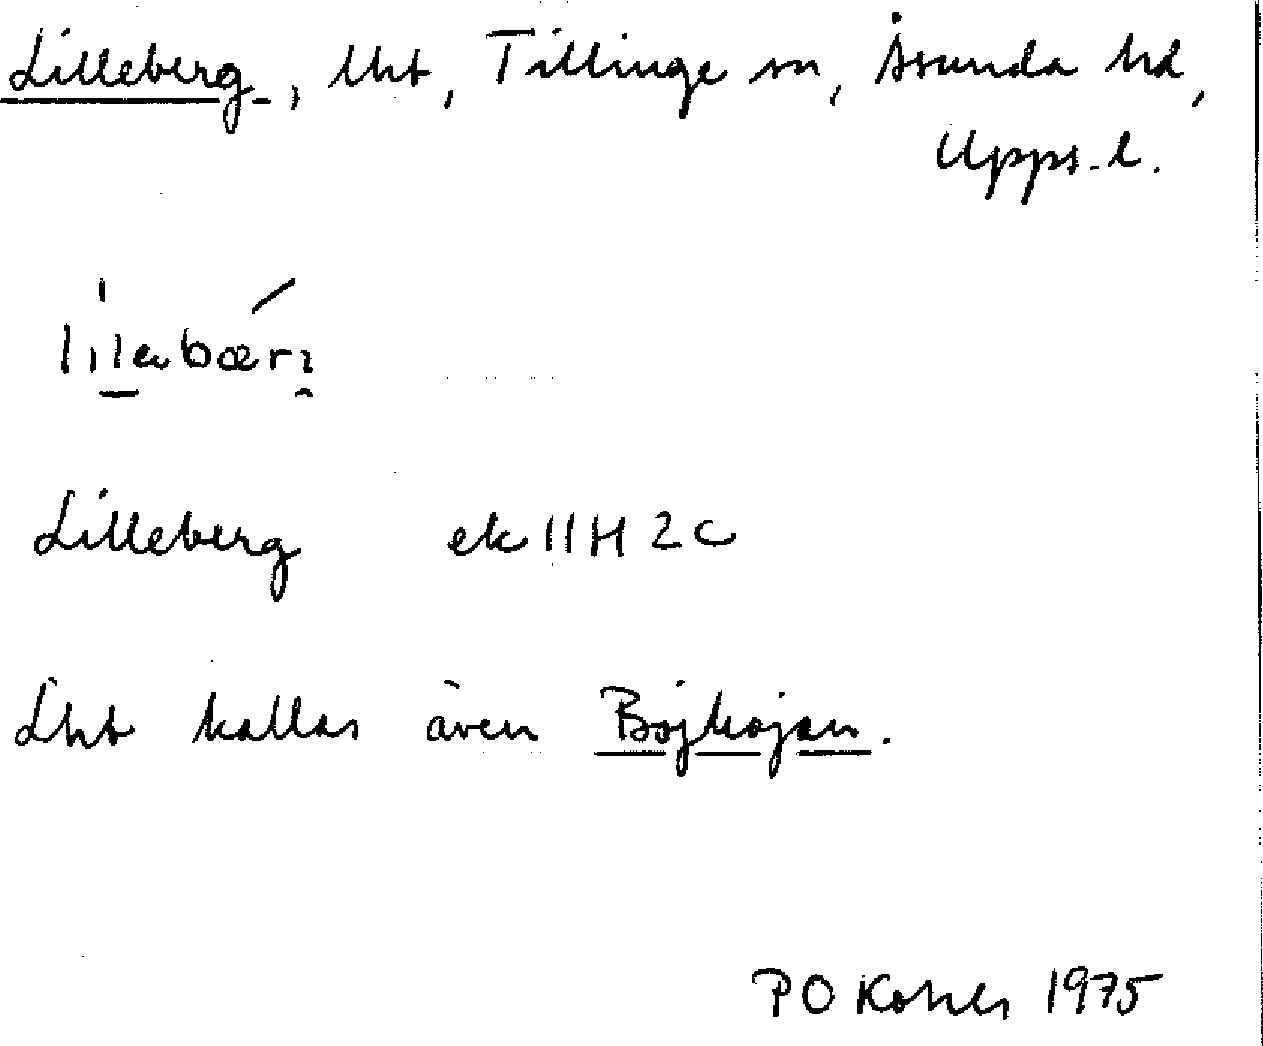 Lilleberg, lht, Tillinge sn, Åsunda hd,
Upps. l.
Lilleberg ek 11H 2c
Lht kallas även Böjkojan.
PO 1975